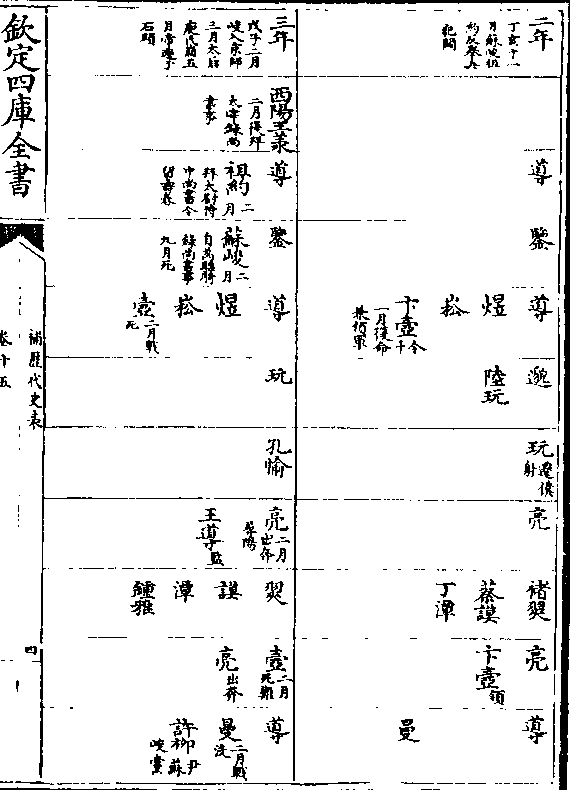 二年
丁亥十一
月蘇峻祖
約反舉兵
犯闕
導
鑒
導
煜
崧
卞壼令十
一月復命
兼領軍
邈
陸玩
玩遷僕
射
亮
褚翜
蔡謨
丁潭
亮
卞壼領
導
曼
三年
戊子二月
峻入京師
三月太后
庾氏崩五
月帝遷于
石頭
西陽王羕
二月復拜
太宰錄尚
書事
導
祖約二
月
拜太尉侍
中尚書令
留壽春
鑒
蘇峻二
月
自為驃騎
錄尚書事
九月死
導
煜
崧
壼二月戰
死
玩
孔愉
亮二月
出奔
尋陽
王導監
翜
謨
潭
鍾雅
壼二月
死難
亮出奔
導
曼二月戰
沒
許柳尹蘇
峻黨
欽定四庫全書
補歷代史表
卷十五
四